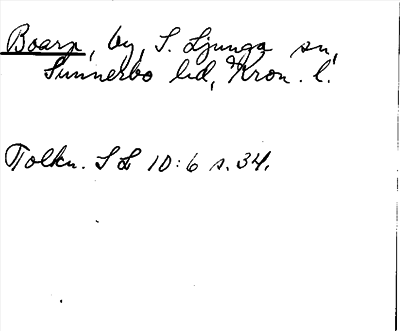 Boarp, by, S. Ljunga sn,
Sunnerbo hd, Kron. l.
Tolkn. SL 10:6 s. 34.